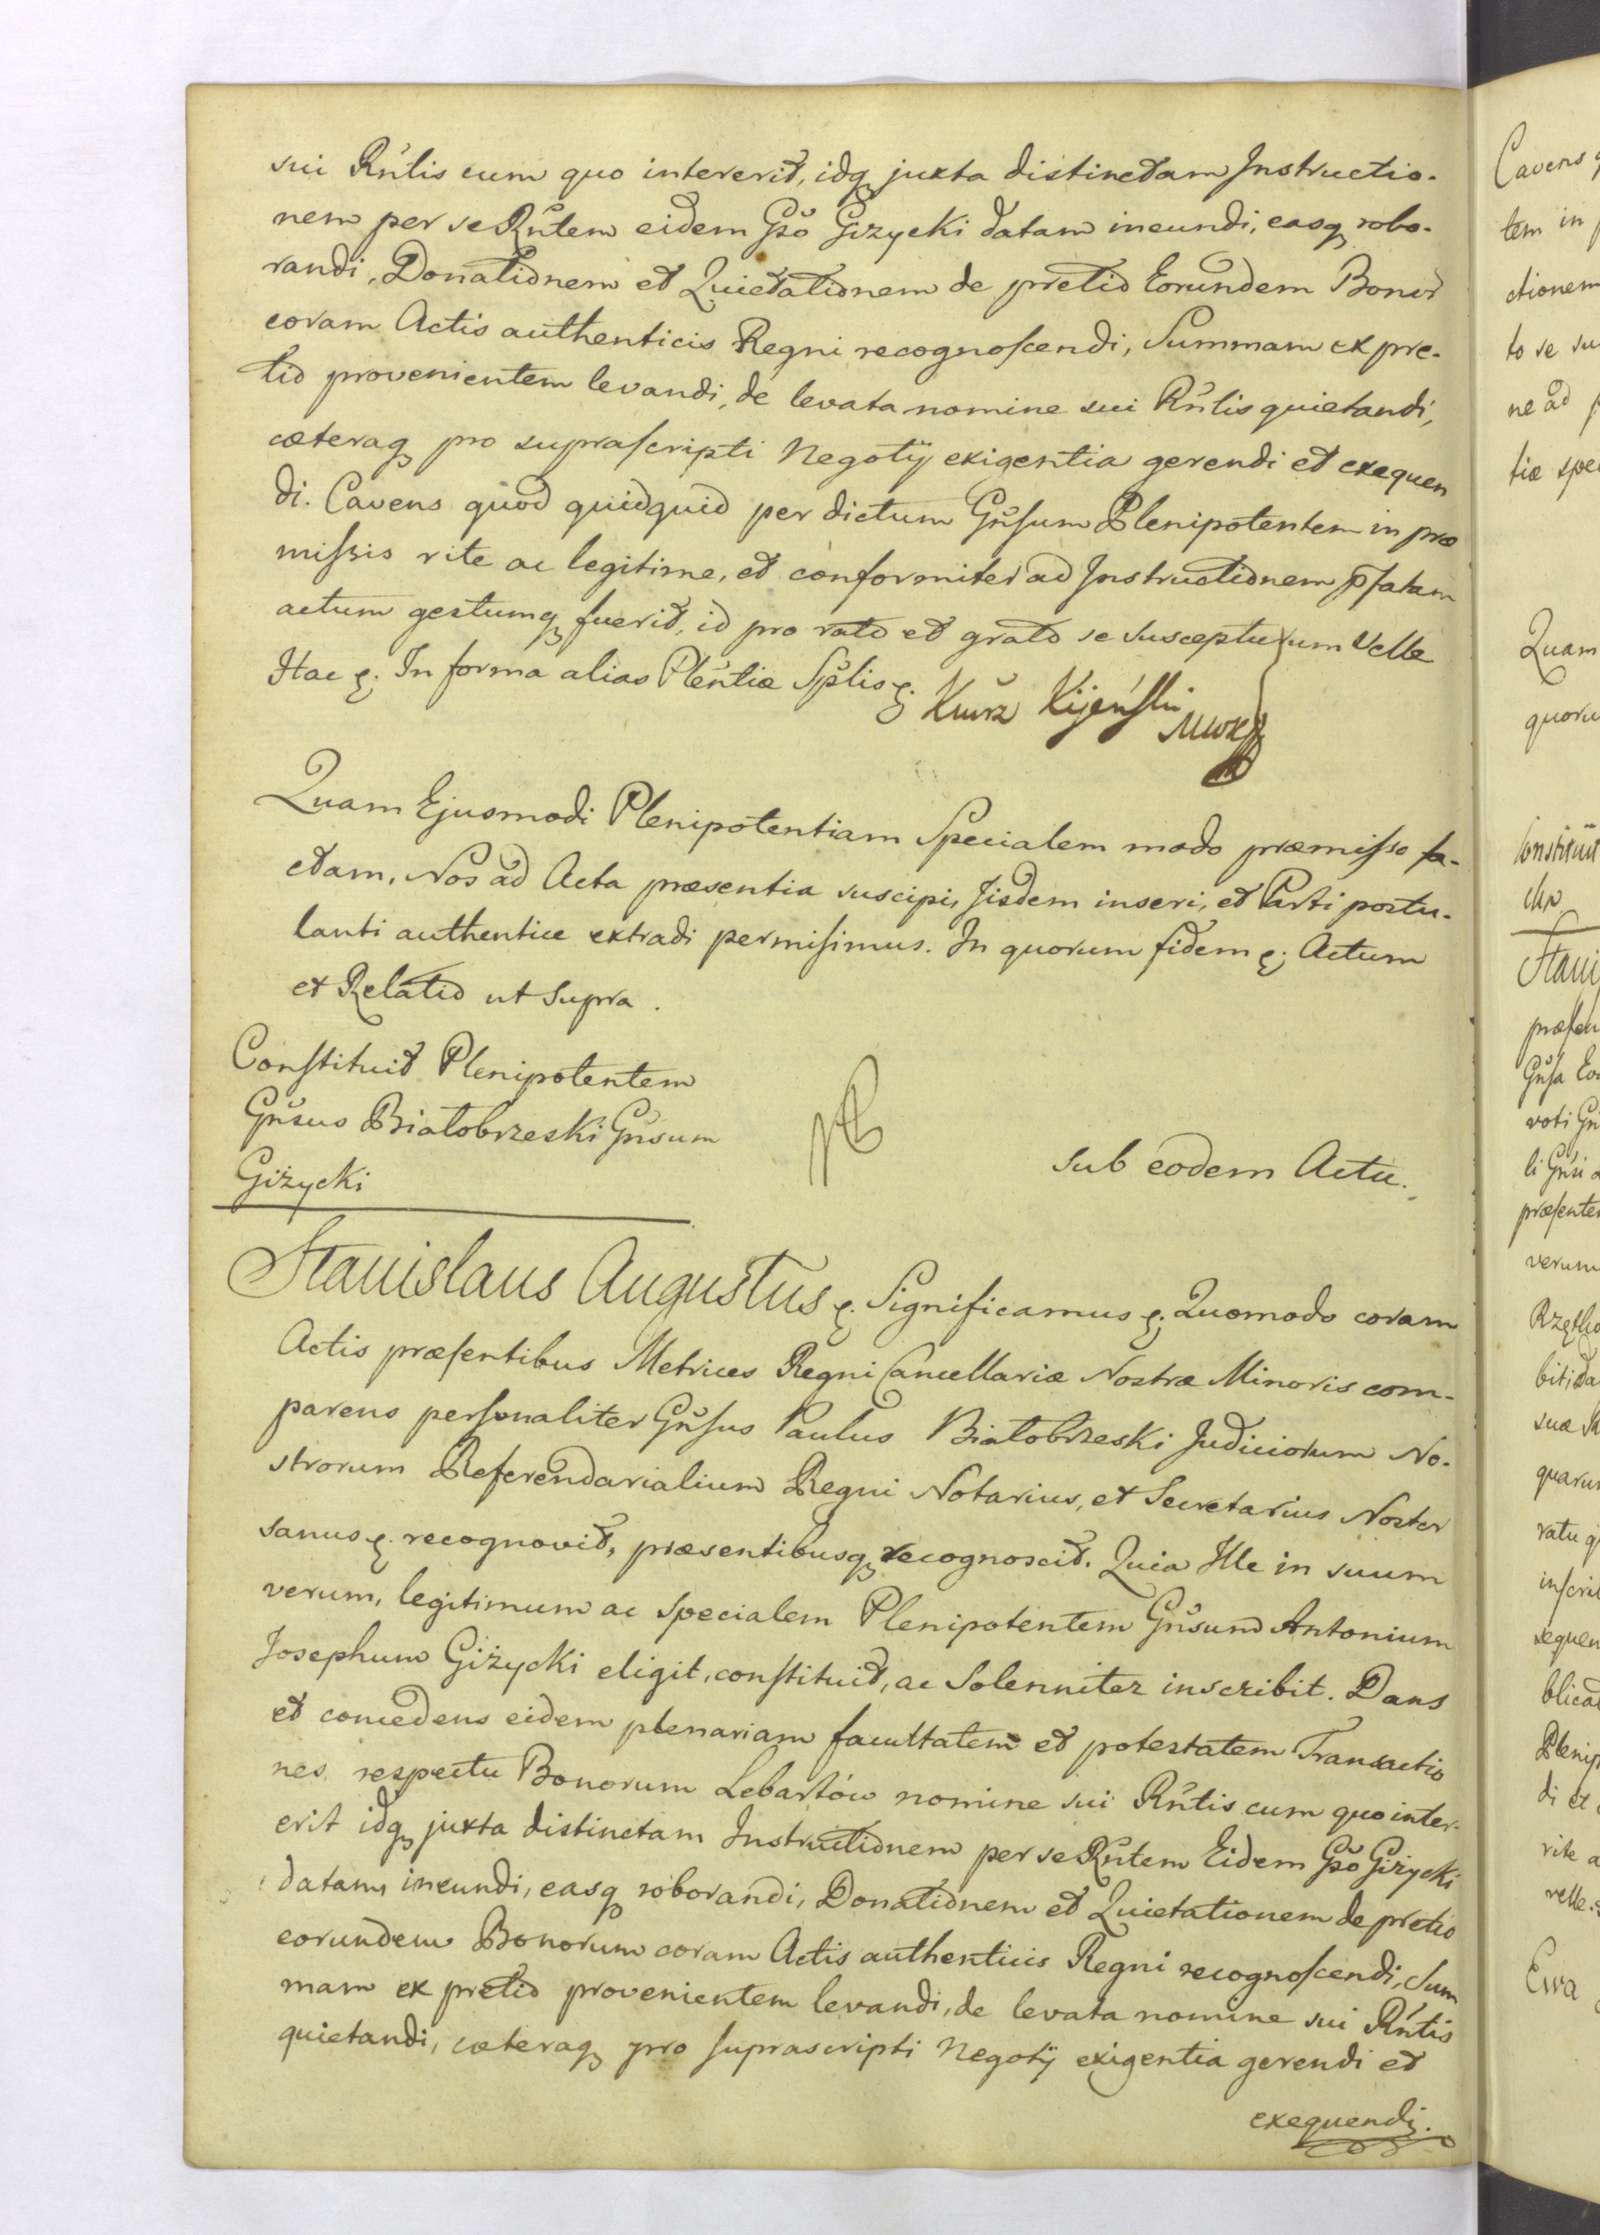 sui Rńtis cum quo intererit, idq juxta distinctam Instructio-
nem per se Rńtem eidem Gso Giżycki datam ineundi, easq robo-
randi, Donationem et Quietationem de pretio Eorundem Bonor
coram Actis authenticis Regni recognoscendi, Summam ex pre-
tio provenientem levandi, de levata nomine sui Rńtis quietandi,
cæteraq pro suprascripti Negotij exigentia gerendi et exequen
di. Cavens quod quidquid per dictum Gnsum Plenipotentem in præ
missis rite ac legitime, et conformiter ad Instructionem pfatam
actum gestumq fuerit, id pro rato et grato se suscepturum velle
Hac &. In forma alias Plentiæ Splis &. Kijeński
Quam Ejusmodi Plenipotentiam Specialem modo præmisso fa-
ctam, Nos ad Acta præsentia suscipi, Iisdem inseri, et Parti postu-
lanti authentice extradi permisimus. In quorum fidem &. Actum
et Relatio ut supra.
Constituit Plenipotentem
Gnsus Białobrzeski Gnsum
Giżycki
Sub eodem Actu.
Stanislaus Augustus &. Significamus &. Quomodo coram
Actis præsentibus Metrices Regni Cancellariæ Nostræ Minoris com-
parens personaliter Gnsus Paulus Białobrzeski Judiciorum No-
strorum Referendarialium Regni Notarius, et Secretarius Noster
sanus &. recognovit, præsentibusq recognoscit. Quia Ille in suum
verum, legitimum ac Specialem Plenipotentem Gnsum Antonium
Josephum Giżycki eligit, constituit, ac Solenniter inscribit. Dans
et concedens eidem plenariam facultatem et potestatem Transactio
nes respectu Bonorum Lebartów nomine sui Rńtis cum quo inter-
erit idq juxta distinctam Instructionem per se Rńtem Eidem Gso Giżycki
datam, ineundi, easq roborandi, Donationem et Quietationem de pretio
eorundem Bonorum coram Actis authenticis Regni recognoscendi, Sum
mam ex pretio provenientem levandi, de levata nomine sui Rńtis
quietandi, cæteraq pro suprascripti Negotij exigentia gerendi et
exequendi.
Cavens
tem in
ctionem
to se su
ne ad
tiæ spe
Quam
quoru
Constituit
Stani
præsen
Gnsa Eo
voti Gn
li Gnsi
præsente
verum
bit, Da
suæ
quarum
ratu q
inscri
sequen
blica
Plenip
di et
rite a
velle.
Ewa